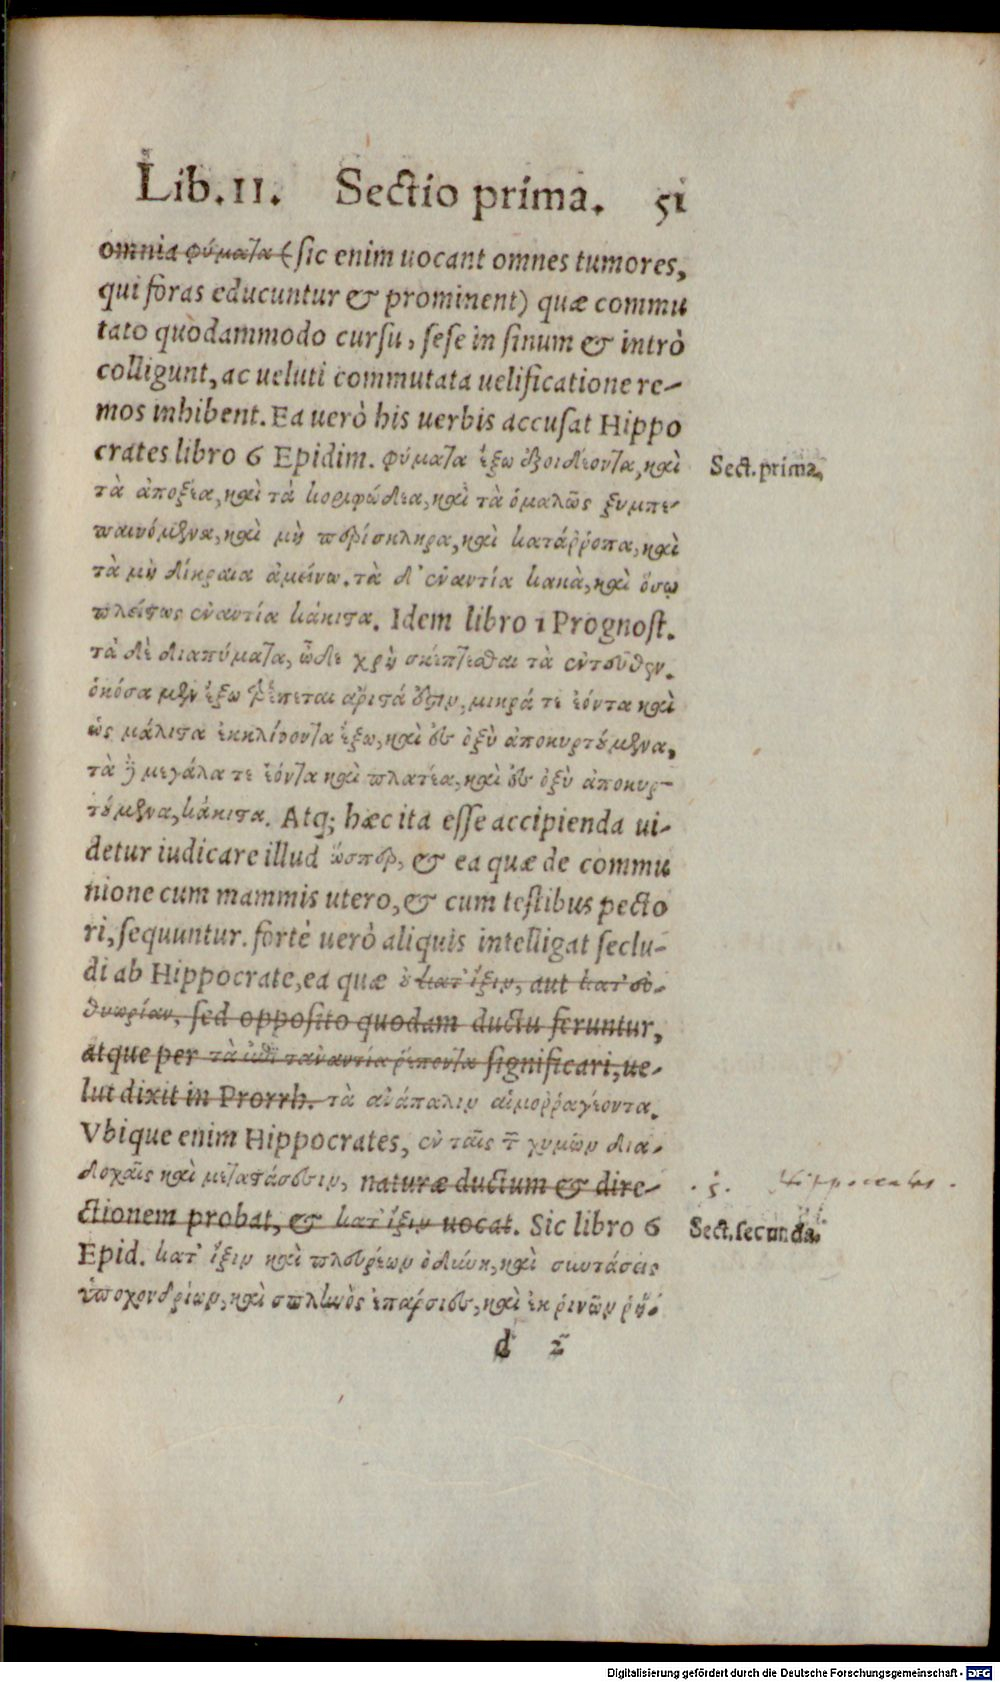 Lib. II. Sectio prima. 51
omnia φύματα (sic enim uocant omnes tumores,
qui foras educuntur & prominent) quæ commu
tato quodammodo cursu, sese in sinum & intrò
colligunt, ac ueluti commutata uelificatione re-
mos inhibent. Ea uerò his uerbis accusat Hippo
crates libro 6 Epidim. φύματα ἔξω ἐξοιδέοντα, καὶ
Sect. prima.
τὰ ἀποξέα, καὶ τὰ κορυφώδεα, καὶ τὰ ὁμαλῶς ξυμπε-
παινόμενα, καὶ μὴ περίσκληρα, καὶ κατάῤῥοπα, καὶ
τὰ μὴ δίκραια ἀμείνω. τὰ δ' ἐναντία κακὰ, καὶ ὅσῳ
πλεῖστως ἐναντία κάκιστα. Idem libro 1 Prognost.
τὰ δὲ διαπύματα, ὧδε χρὴ σκέπτεσθαι τὰ ἐντεῦθεν.
ὁκόσα μὲν ἔξω ῥέπεται ἄριστά ἐστιν, μικρά τε ἐόντα καὶ
ὡς μάλιστα ἐκκλίνοντα ἔξω, καὶ ἐς ὀξὺ ἀποκυρτούμενα,
τὰ δὲ μεγάλα τε ἐόντα καὶ πλατέα, καὶ ἐς ὀξὺ ἀποκυρ-
τούμενα, κάκιστα. Atq; hæc ita esse accipienda ui-
detur iudicare illud ὥσπερ, & ea quæ de commu
nione cum mammis utero, & cum testibus pecto
ri, sequuntur. fortè uerò aliquis intelligat seclu-
di ab Hippocrate, ea quæ οὐ κατ' ἴξιν, aut κατ' εὐ-
θυωρίαν, sed opposito quodam ductu feruntur,
atque per τὰ ἐπὶ τἀναντία ῥέποντα significari, ue-
lut dixit in Prorrh. τὰ ἀνάπαλιν αἱμοῤῥαγέοντα.
Vbique enim Hippocrates, ἐν ταῖς τῶν χυμῶν δια-
δοχαῖς καὶ μεταστάσεσιν, naturæ ductum & dire-
. s. Hippocrates .
ctionem probat, & κατ' ἴξιν uocat. Sic libro 6
Sect. secunda.
Epid. κατ' ἴξιν καὶ πλευρέων ὀδύνη, καὶ συντάσεις
ὑποχονδρίων, καὶ σπληνὸς ἐπάρσιες, καὶ ἐκ ῥινῶν ῥή-
d 2
Digitalisierung gefördert durch die Deutsche Forschungsgemeinschaft - DFG